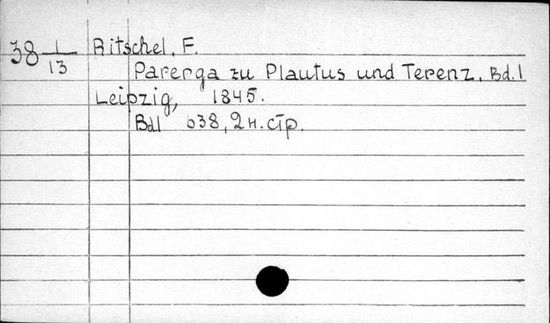 38 1/13 Ritschel, F.
Parerga zu Plautus und Terenz. Bd.1
Leipzig, 1845.
Bd1 638, 2 н. стр.